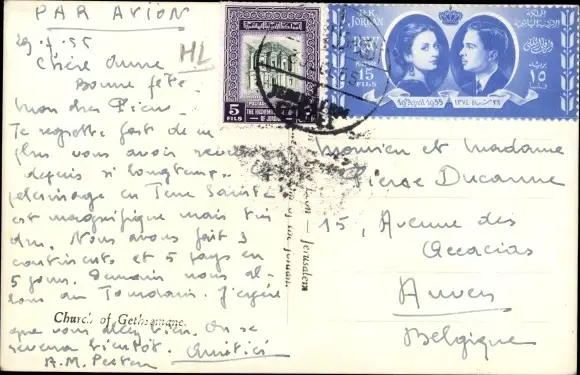 PAR AVION
29.7.55
HL
Chère Anne
Bonne fête.
mon cher Pierre
Je regrette fort de ne
plus vous avoir revu
depuis si longtemps.
pèlerinage en Terre Sainte
est magnifique mais très
dur. Nous avons fait 3
continents et 5 pays en
5 jours. Demain nous al-
lons au Jourdain. J'espère
Church of Gethsemane.
que vous allez bien. On se
reverra bientôt. Amitiés
A.M.
5
FILS
POSTAGE
THE HASHEMITE
OF JORDAN
H.K. JORDAN
15
FILS
19th April 1955
١٥
Jerusalem
Monsieur et Madame
Pierre Ducanne
15, Avenue des
Accacias
Anvers
Belgique